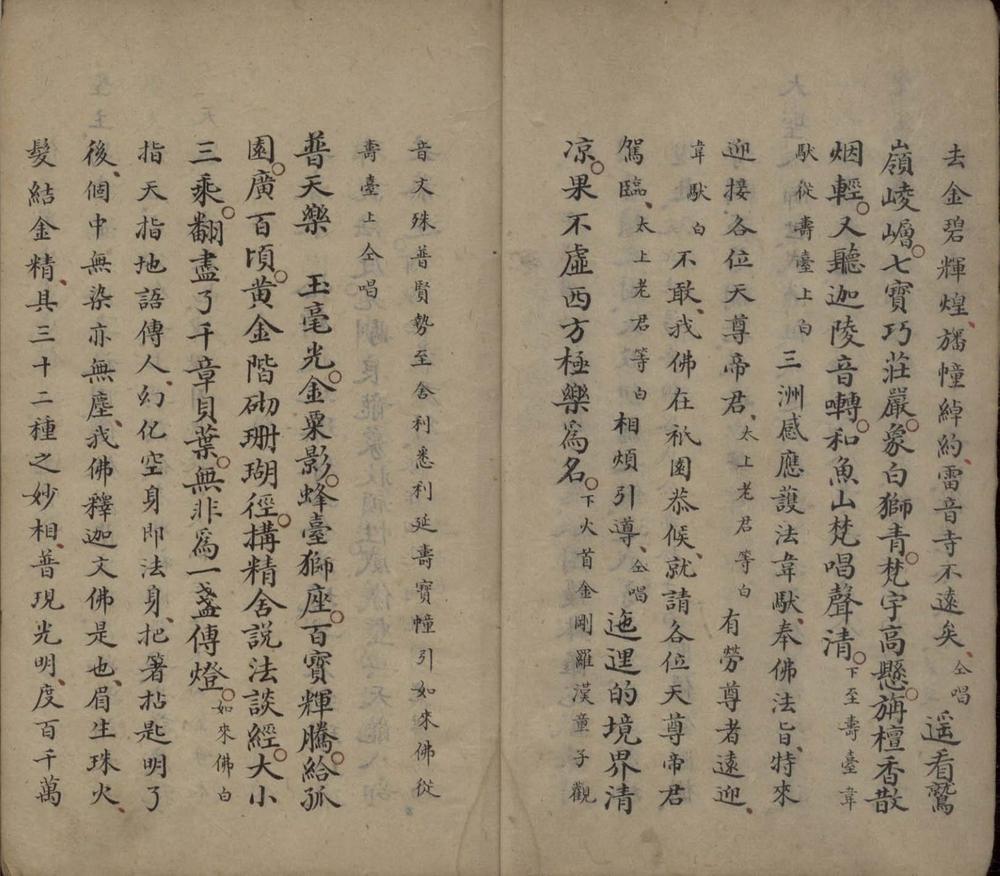 去金碧輝煌、旛幢綽約、雷音寺不遠矣、仝唱遥看鷲
嶺崚嶒。七寶巧莊嚴。象白獅青。梵宇高懸。旃檀香散
烟輕。又聽迦陵音囀。和魚山梵唱聲清。下至壽臺韋
馱從壽臺上白三洲感應護法韋馱、奉佛法旨、特來
迎接各位天尊帝君、太上老君等白有勞尊者遠迎、
韋馱白不敢、我佛在祇園恭候、就請各位天尊帝君
駕臨、太上老君等白相煩引導、仝唱迤逞的境界清
凉。果不虛西方極樂爲名。下火首金剛羅漢童子觀
音文殊普賢勢至舍利悉利延壽寶幢引如來佛從
壽臺上仝唱
普天樂 玉毫光。金粟影。蜂臺獅座。百寶輝騰。給孤
園。廣百頃。黄金階砌珊瑚徑。搆精舍説法談經。大小
三乘。翻盡了千章貝葉。無非爲一盞傳燈。如來佛白
指天指地語傳人、幻化空身即法身、把箸拈匙明了
後、個中無染亦無塵、我佛釋迦文佛是也、眉生珠火、
髮結金精、具三十二種之妙相、普現光明、度百千萬